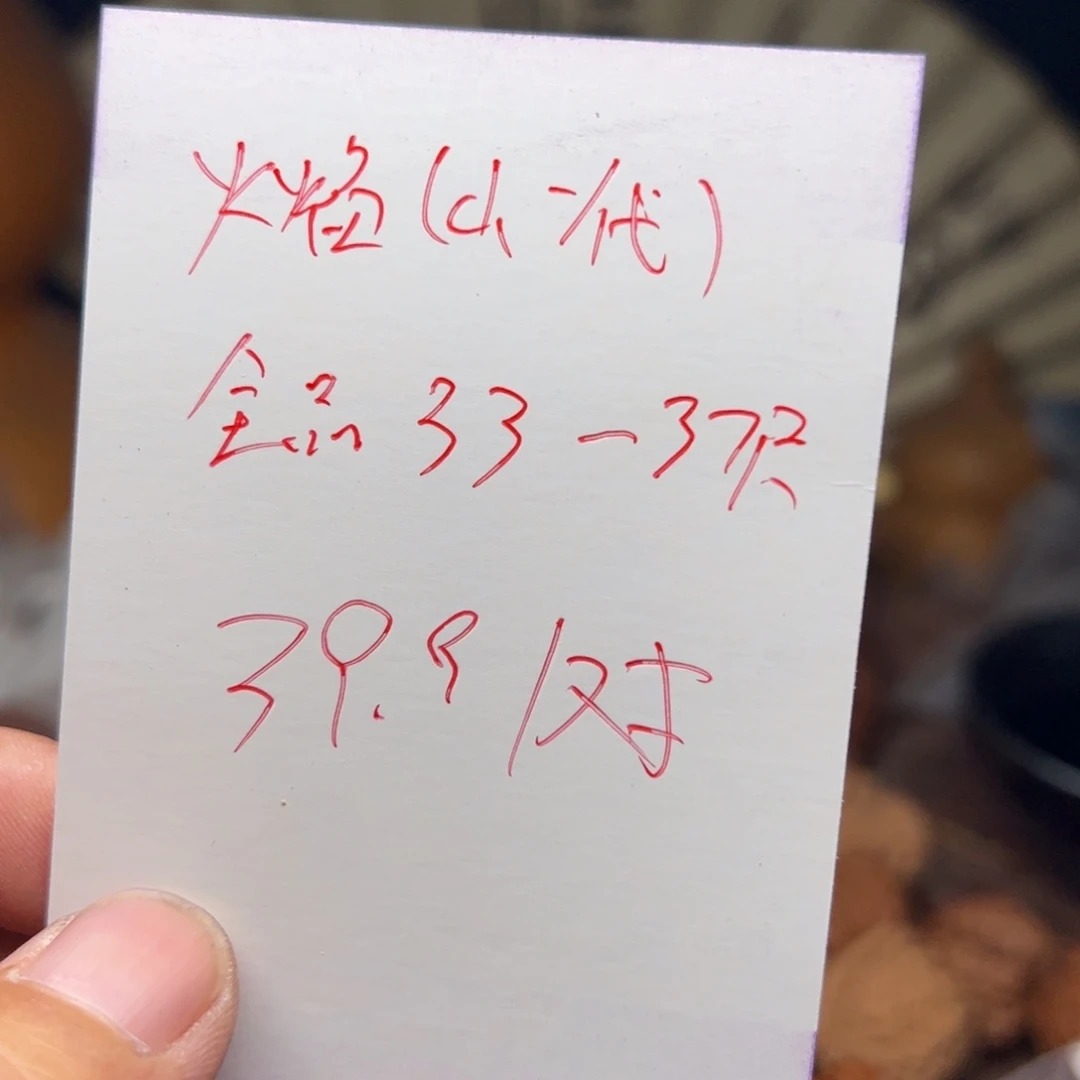 火焰(小一代)
全品33-37尺
39.9/对